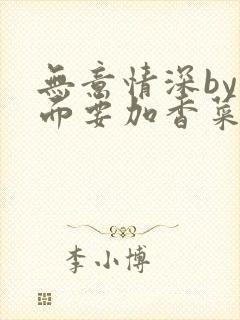 無意情深by
而要加香菜
李小博